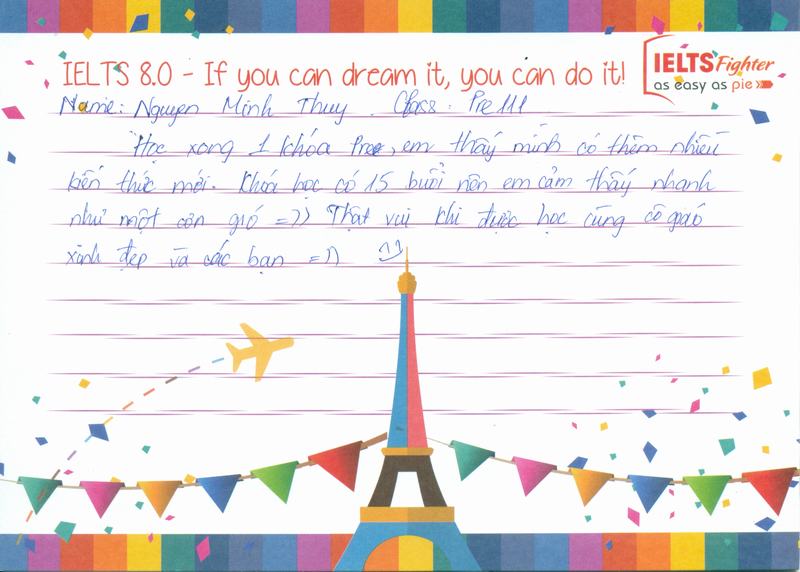 IELTS 8.0 - If you can dream it, you can do it!
IELTS Fighter
as easy as pie
Name: Nguyen Minh Thuy. Class: Pre 111
Học xong 1 khóa Pre, em thấy mình có thêm nhiều
kiến thức mới. Khóa học có 15 buổi nên em cảm thấy nhanh
như một cơn gió =)) Thật vui khi được học cùng cô giáo
xinh đẹp và các bạn =))